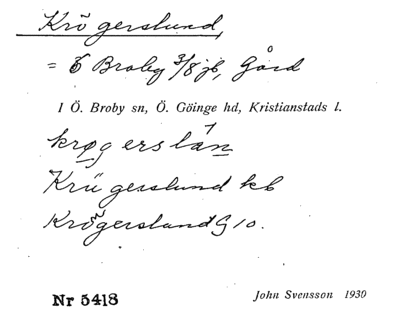 Krögerslund,
= Ö Broby 3/8 jb, Gård
I Ö. Broby sn, Ö. Göinge hd, Kristianstads l.
krøgerslán
Krügerslund kb
Krögerslund G 10.
Nr 5418
John Svensson 1930